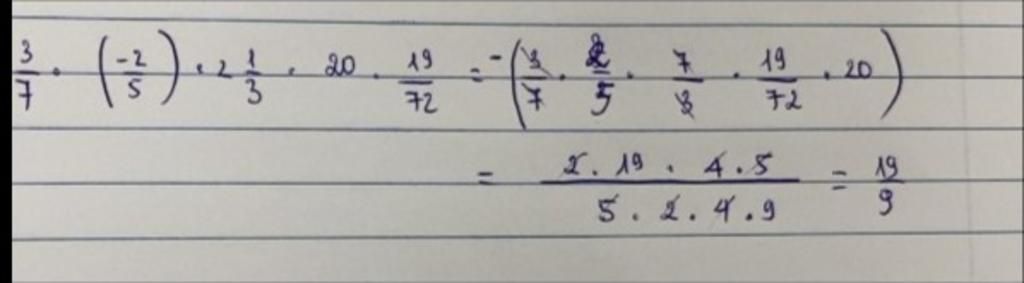 3/7 . (-2/5) . 2 1/3 . 20 . 19/72 = -(3/7 . 2/5 . 7/3 . 19/72 . 20)
= 2 . 19 . 4 . 5 / 5 . 2 . 4 . 9 = 19/9